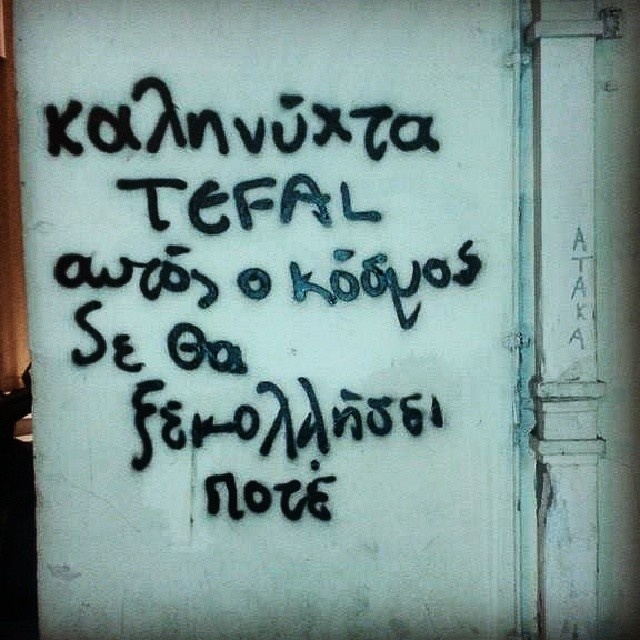 καληνύχτα
TEFAL
αυτός ο κόσμος
δε θα
ξεκολλήσει
ποτέ
ΑΤΑΚΑ